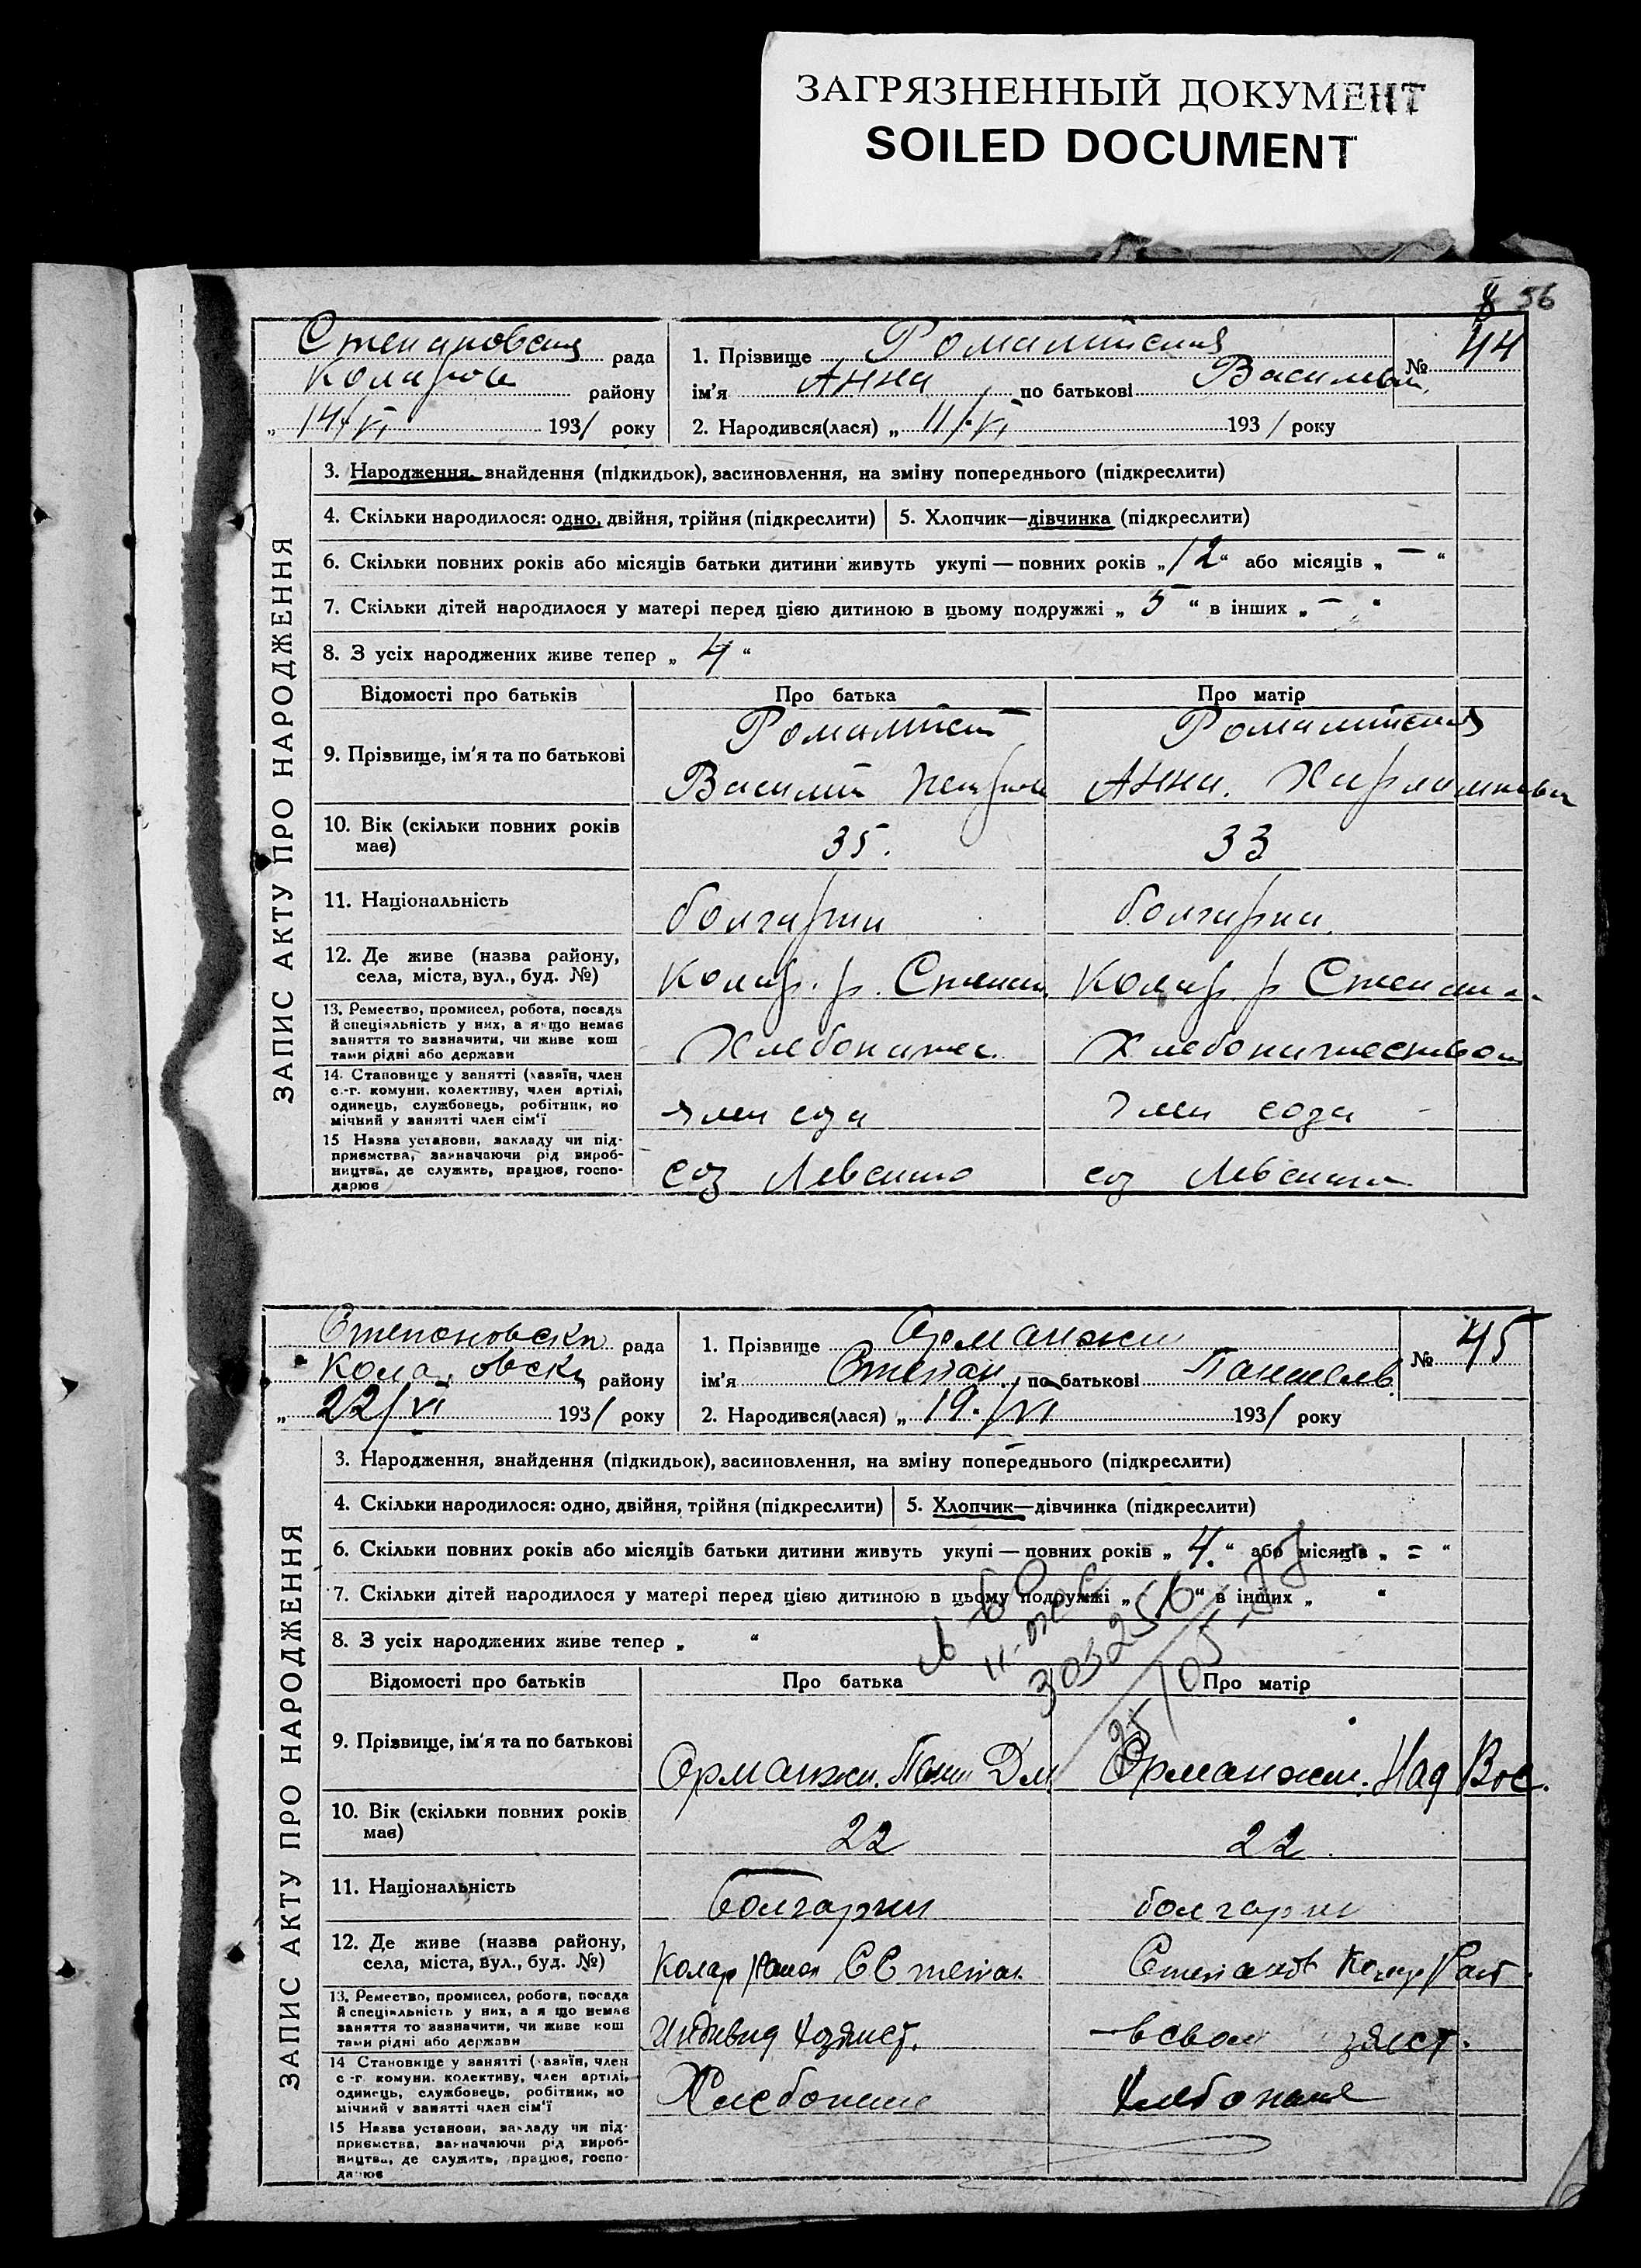 ЗАГРЯЗНЕННЫЙ ДОКУМЕНТ
SOILED DOCUMENT
56
ЗАПИС АКТУ ПРО НАРОДЖЕННЯ
Степановская рада
Коларов району
„ 14/VI 1931 року
1. Прізвище
ім'я Анна по батькові Васильев.
№ 44
2. Народився(лася) „ 11/VI 1931 року
3. Народження, знайдення (підкидьок), засиновлення, на зміну попереднього (підкреслити)
4. Скільки народилося: одно, двійня, трійня (підкреслити)
5. Хлопчик—дівчинка (підкреслити)
6. Скільки повних років або місяців батьки дитини живуть укупі — повних років „ 12 “ або місяців „ — “
7. Скільки дітей народилося у матері перед цією дитиною в цьому подружжі „ 5 “ в інших „ — “
8. З усіх народжених живе тепер „ 4 “
Відомості про батьків Про батька Про матір
9. Прізвище, ім'я та по батькові
Василий Анна.
10. Вік (скільки повних років має) 35. 33
11. Національність болгарин болгарки
12. Де живе (назва району, села, міста, вул., буд. №) Колар. р. Степан. Колар. р
13. Ремество, промисел, робота, посада й спеціяльність у них, а якщо немає заняття то зазначити, чи живе коштами рідні або держави
Хлебопашеством
14. Становище у занятті (хазяїн, член с.-г. комуни, колективу, член артілі, одинець, службовець, робітник, помічний у занятті член сім'ї
член соза член соза
15 Назва установи, закладу чи підприємства, зазначаючи рід виробництва, де служить, працює, господарює
соз Левский соз
ЗАПИС АКТУ ПРО НАРОДЖЕННЯ
Степановска рада
Кола овск району
„ 22/VI 1931 року
1. Прізвище Орманжи
ім'я Степан по батькові Пантелев.
№ 45
2. Народився(лася) „ 19/VI 1931 року
3. Народження, знайдення (підкидьок), засиновлення, на зміну попереднього (підкреслити)
4. Скільки народилося: одно, двійня, трійня (підкреслити)
5. Хлопчик—дівчинка (підкреслити)
6. Скільки повних років або місяців батьки дитини живуть укупі — повних років „ 4. “ або місяців „ = “
7. Скільки дітей народилося у матері перед цією дитиною в цьому подружжі „ “ в інших „ “
8. З усіх народжених живе тепер „ “
Відомості про батьків Про батька Про матір
9. Прізвище, ім'я та по батькові Орманжи. Пант Дм Орманжи. Над Вас.
10. Вік (скільки повних років має) 22 22
11. Національність болгарин болгарк
12. Де живе (назва району, села, міста, вул., буд. №) Колар район С Степан.
13. Ремество, промисел, робота, посада й спеціяльність у них, а якщо немає заняття то зазначити, чи живе коштами рідні або держави
Индивид хозяист. в свом зяист.
14 Становище у занятті (хазяїн, член с-г. комуни, колективу, член артілі, одинець, службовець, робітник, помічний у занятті член сім'ї
Хлебопаше Хлебопаше
15 Назва установи, закладу чи підприємства, зазначаючи рід виробництва, де служить, працює, господарює